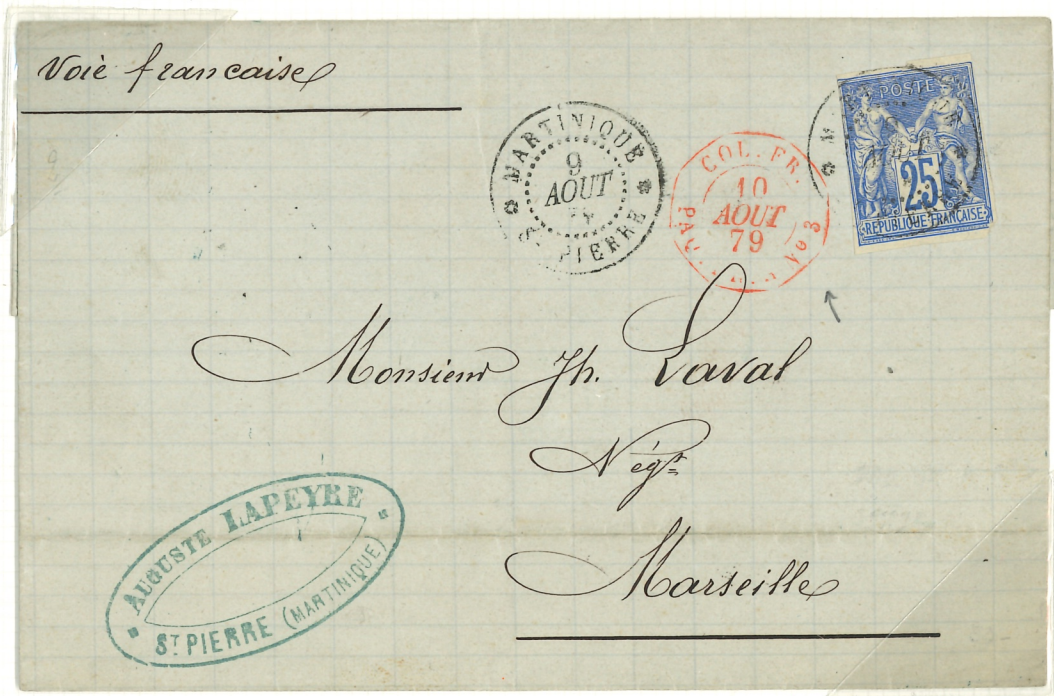 Voie francaise
MARTINIQUE
9
AOUT
ST PIERRE
COL. FR.
10
AOUT
79
PAQ. No 3
POSTE
25
REPUBLIQUE FRANÇAISE
Monsieur Jh. Laval
Négt
Marseille
AUGUSTE LAPEYRE
ST PIERRE (MARTINIQUE)